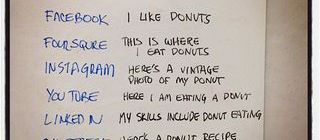 FACEBOOK I LIKE DONUTS
FOURSQURE THIS IS WHERE
I EAT DONUTS
INSTAGRAM HERE'S A VINTAGE
PHOTO OF MY DONUT
YOU TUBE HERE I AM EATING A DONUT
LINKED IN MY SKILLS INCLUDE DONUT EATING
HERE'S A DONUT RECIPE